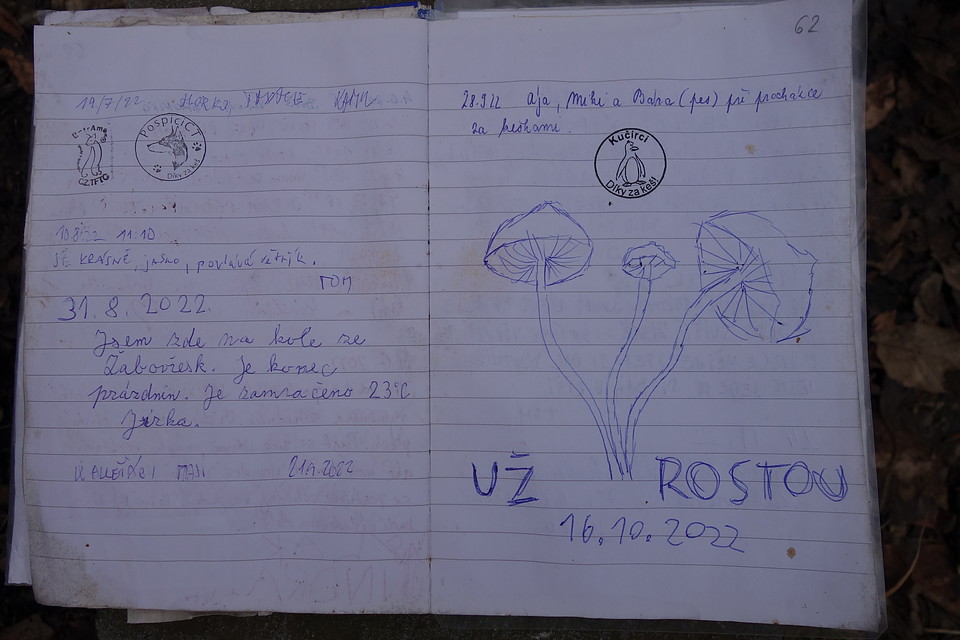 19/7/22
PospíciCT
Díky za keš
CZTFTC
10.8.22 11:10
JE KRÁSNĚ, jasno, povlává větřík.
TOM
31.8.2022
Jsem zde na kole ze
Žabovřesk. Je konec
prázdnin. Je zamračeno 23°C
Jirka.
21.9.2022
62
28.9.22 Ája, Miki a Bára (pes) při procházce
za keškami.
Kučírci
Díky za keš!
UŽ ROSTOU
16.10.2022